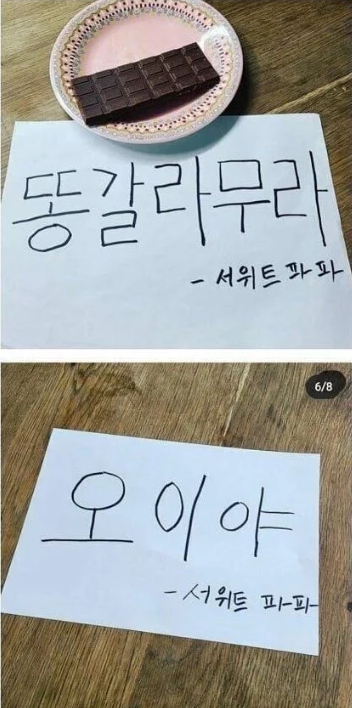 똥갈라무라
- 서위트 파파
6/8
오이야
- 서위트 파파